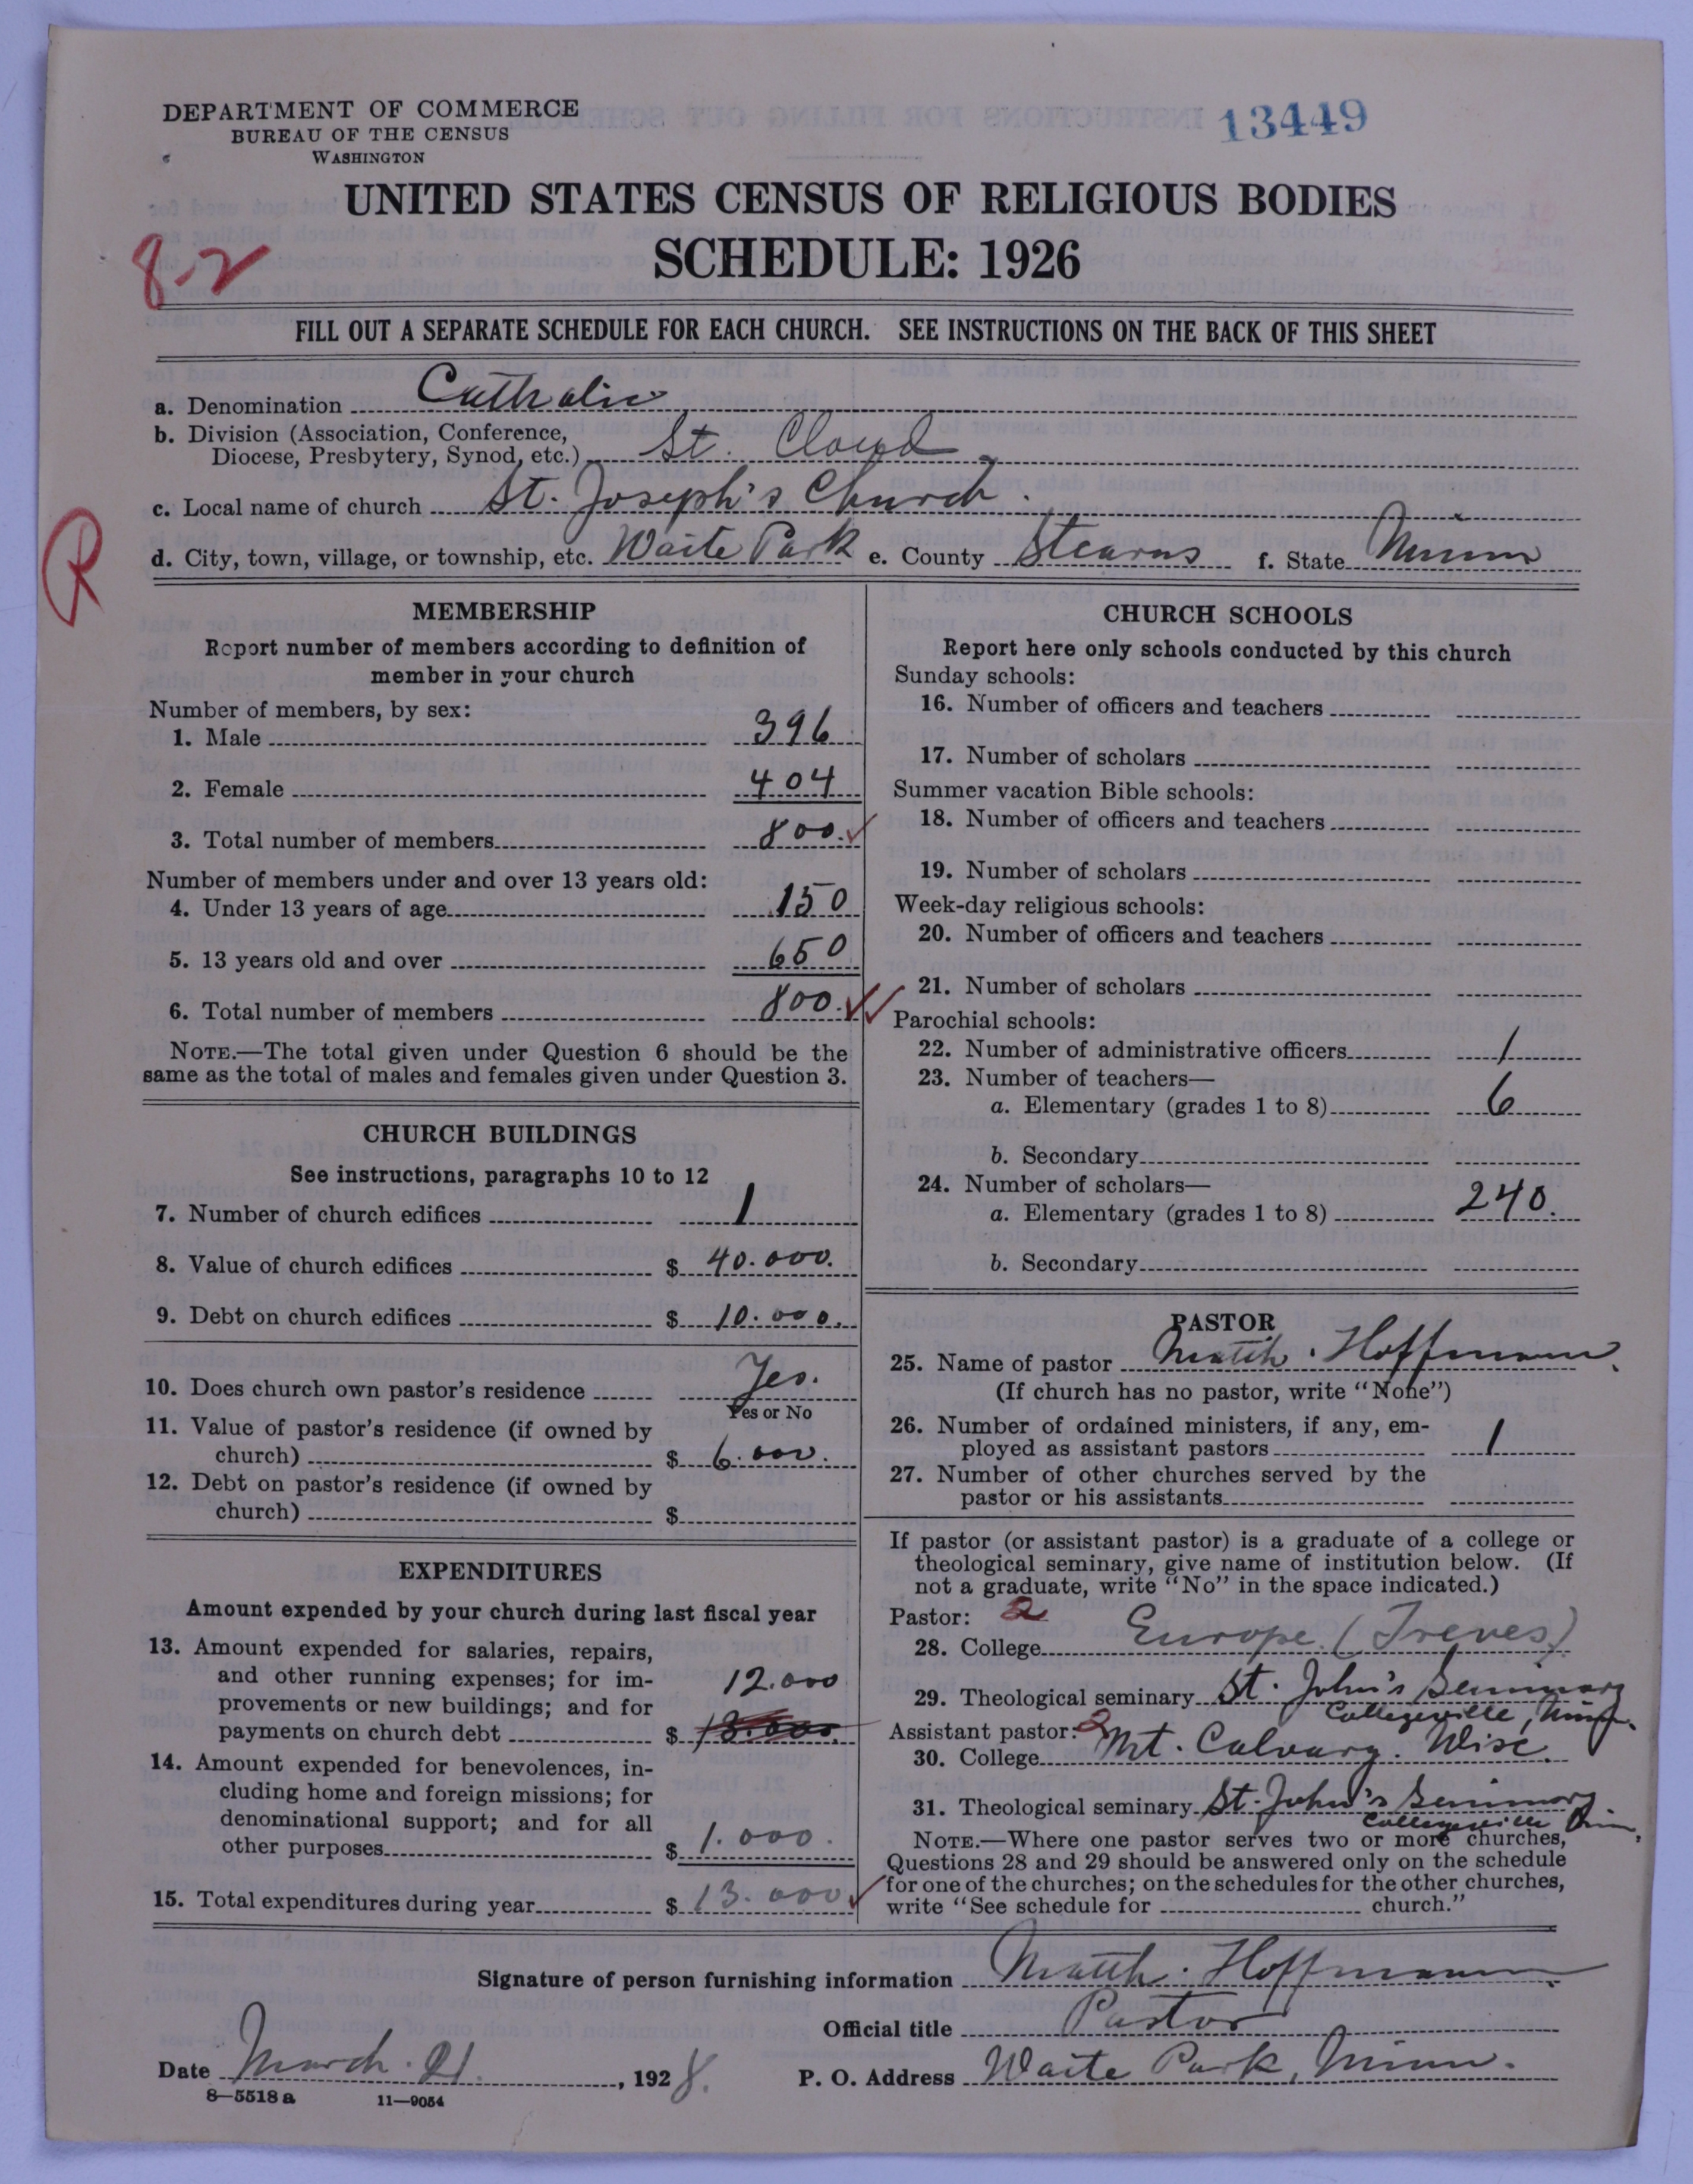 DEPARTMENT OF COMMERCE
BUREAU OF THE CENSUS
WASHINGTON
13449
UNITED STATES CENSUS OF RELIGIOUS BODIES
SCHEDULE: 1926
8-2
FILL OUT A SEPARATE SCHEDULE FOR EACH CHURCH. SEE INSTRUCTIONS ON THE BACK OF THIS SHEET
a. Denomination Catholic
b. Division (Association, Conference,
Diocese, Presbytery, Synod, etc.) St. Cloud
c. Local name of church St. Joseph's Church.
d. City, town, village, or township, etc. Waite Park e. County Stearns f. State Minn
R
MEMBERSHIP
Report number of members according to definition of
member in your church
Number of members, by sex:
1. Male 396
2. Female 404
3. Total number of members 800.
Number of members under and over 13 years old:
4. Under 13 years of age 150
5. 13 years old and over 650
6. Total number of members 800.
NOTE.—The total given under Question 6 should be the
same as the total of males and females given under Question 3.
CHURCH BUILDINGS
See instructions, paragraphs 10 to 12
7. Number of church edifices 1
8. Value of church edifices $ 40.000.
9. Debt on church edifices $ 10.000.
10. Does church own pastor's residence Yes.
Yes or No
11. Value of pastor's residence (if owned by
church) $ 6.000.
12. Debt on pastor's residence (if owned by
church) $
EXPENDITURES
Amount expended by your church during last fiscal year
13. Amount expended for salaries, repairs,
and other running expenses; for im-
provements or new buildings; and for 12.000
payments on church debt $ 13.000.
14. Amount expended for benevolences, in-
cluding home and foreign missions; for
denominational support; and for all
other purposes $ 1.000.
15. Total expenditures during year $ 13.000
CHURCH SCHOOLS
Report here only schools conducted by this church
Sunday schools:
16. Number of officers and teachers
17. Number of scholars
Summer vacation Bible schools:
18. Number of officers and teachers
19. Number of scholars
Week-day religious schools:
20. Number of officers and teachers
21. Number of scholars
Parochial schools:
22. Number of administrative officers 1
23. Number of teachers—
a. Elementary (grades 1 to 8) 6
b. Secondary
24. Number of scholars—
a. Elementary (grades 1 to 8) 240.
b. Secondary
PASTOR
25. Name of pastor Matth. Hoffmann.
(If church has no pastor, write "None")
26. Number of ordained ministers, if any, em-
ployed as assistant pastors 1
27. Number of other churches served by the
pastor or his assistants
If pastor (or assistant pastor) is a graduate of a college or
theological seminary, give name of institution below. (If
not a graduate, write "No" in the space indicated.)
Pastor: 2
28. College Europe (Treves)
29. Theological seminary St. John's Seminary
Collegeville, Minn.
Assistant pastor: 2
30. College Mt. Calvary. Wisc.
31. Theological seminary St. John's Seminary
Collegeville
NOTE.—Where one pastor serves two or more churches,
Questions 28 and 29 should be answered only on the schedule
for one of the churches; on the schedules for the other churches,
write "See schedule for church."
Signature of person furnishing information Matth. Hoffmann
Official title Pastor
Date March 21. , 1928. P. O. Address Waite Park, Minn.
8—5518 a 11—9054